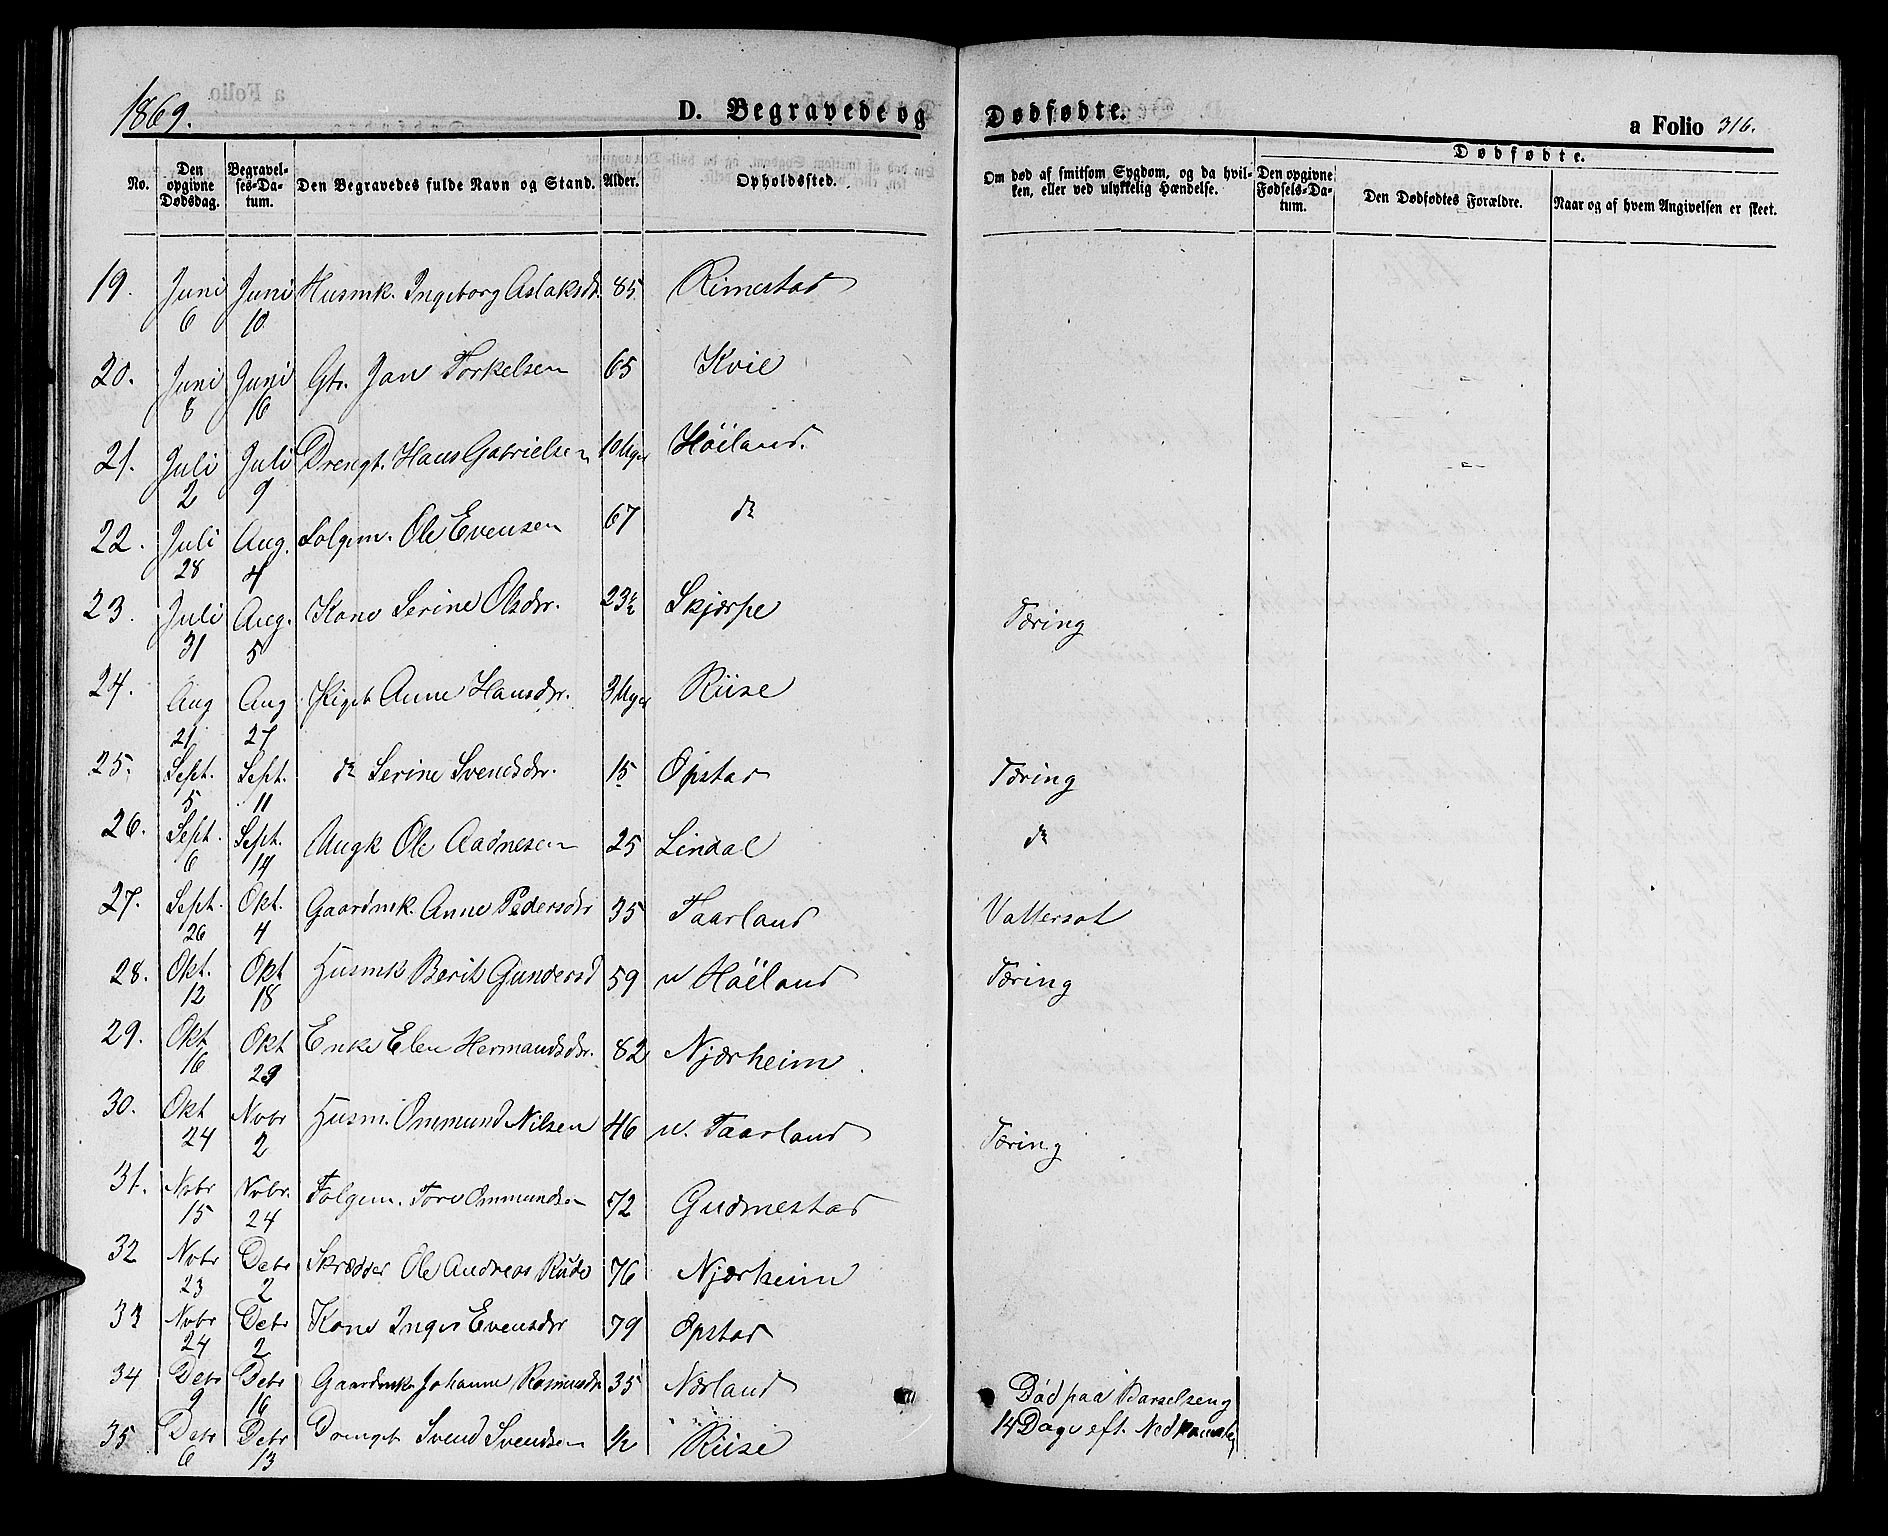 1869.
D. Begravede og Dødfødte.
a Folio 316.
No.
Den opgivne Dødsdag.
Begravelses-Datum.
Den Begravedes fulde Navn og Stand.
Alder.
Opholdssted.
Om død af smitsom Sygdom, og da hvilken, eller ved ulykkelig Hændelse.
Dødfødte.
Den opgivne Fødsels-Datum.
Den Dødfødtes Forældre.
Naar og af hvem Angivelsen er skeet.
19. Juni 6 Juni 10 Husmk. Ingeborg Aslaksdr. 85 Rimestad
20. Juni 8 Juni 16 Gbr. Jan Torkelsen 65 Kvie
21. Juli 2 Juli 9 Drengb. Hans Gabrielsen 10 Uger Höiland.
22. Juli 28 Aug. 4 Folgem. Ole Evensen 67 do
23. Juli 31 Aug. 5 Kone Serine Olsdr. 23½ Skjærpe Tæring
24. Aug 21 Aug 27 Pigeb Anne Hansdr. 3 Uger Riise
25. Sept. 5 Sept. 11 do Serine Svendsdr. 15 Opstad Tæring
26. Sept. 6 Sept. 14 Ungk Ole Aadnesen 25 Lindal do
27. Sept. 26 Okt. 4 Gaardmk. Anne Pedersdr 35 Taarland Vattersot
28. Okt. 12 Okt 18 Husmk Berit Gundersd 59 u Höiland Tæring
29. Okt 16 Okt 23 Enke Elen Hermandsdr. 82 Njærheim
30. Okt 24 Novbr 2 Husm. Ommund Nilsen 46 u. Taarland Tæring
31. Novbr 15 Novbr. 24 Folgem. Tore Ommundsen 72 Gudmestad
32 Novbr 23 Debr 2 Skrædder Ole Andreas Rude 76 Njærheim
33 Novbr 24 Debr 2 Kone Inger Evensdr 79 Opstad
34 Debr 9 Debr 16 Gaardmk Johanne Rasmusdr 35 Nærland Död paa Barselseng
35 Debr 6 Debr 13 Drengeb Svend Svendsen ½ Riise 14 Dage eft. Nedkomsten